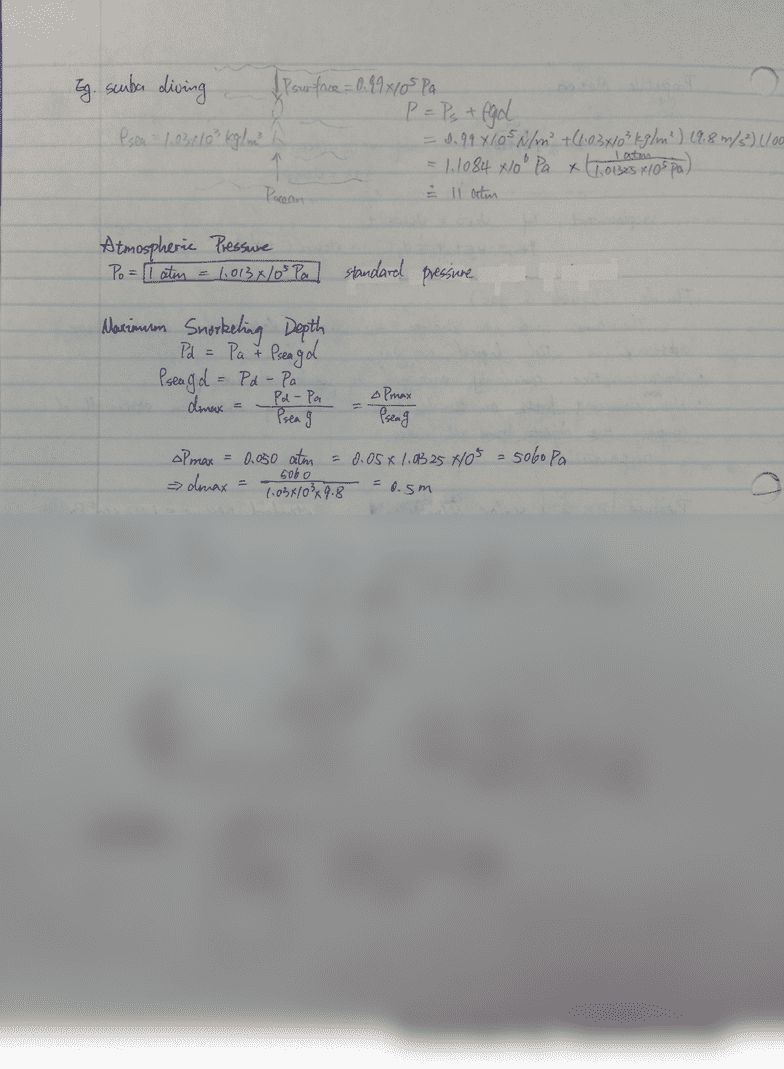 Eg. scuba diving
Psurface = 0.99×10⁵ Pa
P = Pₛ + ρgd
ρsea = 1.03×10³ kg/m³
= 0.99 ×10⁵ N/m² + (1.03×10³ kg/m³) (9.8 m/s²) (100
= 1.1084 ×10⁶ Pa × (1 atm / 1.01325 ×10⁵ Pa)
≐ 11 atm
Pocean
Atmospheric Pressure
P₀ = 1 atm = 1.013×10⁵ Pa standard pressure
Maximum Snorkeling Depth
Pd = Pa + ρsea g d
ρsea g d = Pd - Pa
dmax = (Pd - Pa) / (ρsea g) = ΔPmax / (ρsea g)
ΔPmax = 0.050 atm = 0.05 × 1.0325 ×10⁵ = 5060 Pa
⇒ dmax = 5060 / (1.03×10³×9.8) = 0.5 m